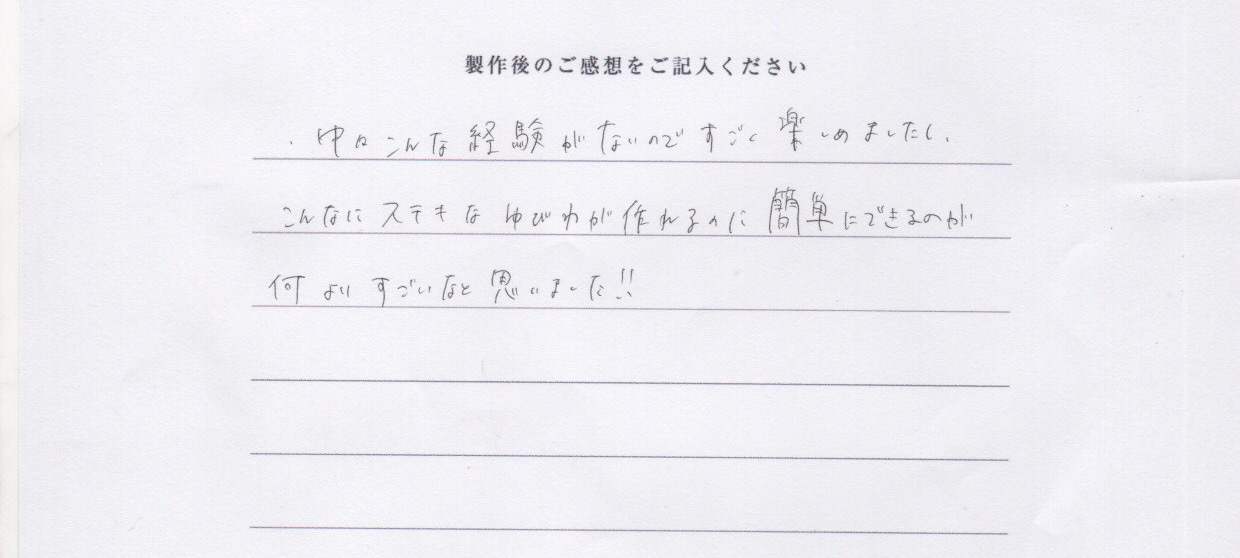 製作後のご感想をご記入ください
・中々こんな経験がないのですごく楽しめましたし、
こんなにステキなゆびわが作れるのに簡単にできるのが
何よりすごいなと思いました!!